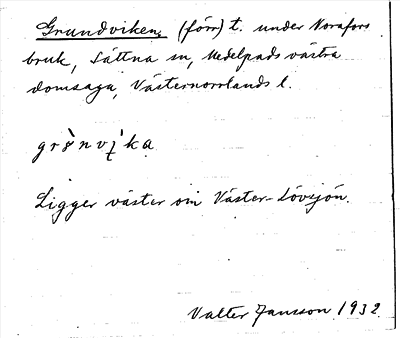 Grundviken, (förr) t. under Norafors
bruk, Sättna sn, Medelpads västra
domsaga, Västernorrlands l.
Ligger väster om Väster-Lövsjön.
Valter Jansson 1932.